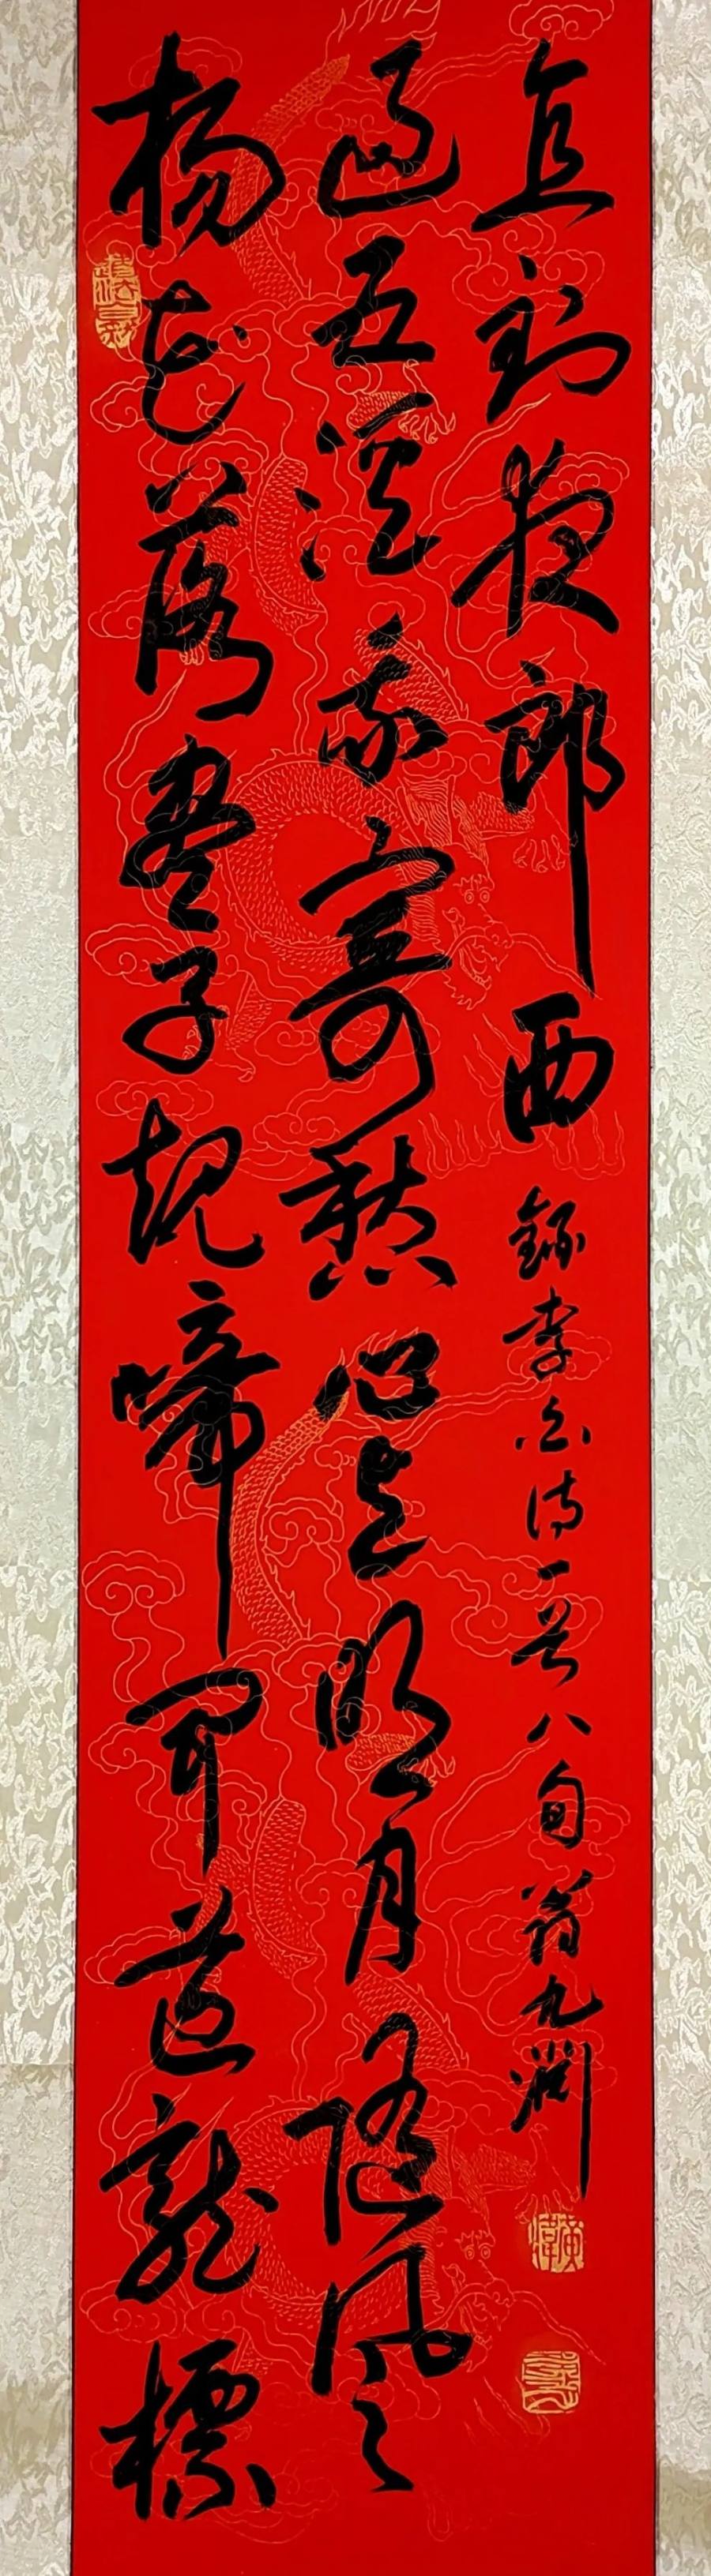 楊花落盡子規啼聞道龍標
過五溪我寄愁心與明月隨風
直到夜郎西
錄李白詩一首八旬翁九淵